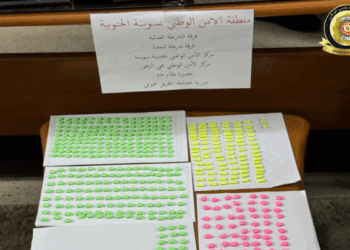 منطقة الامن الوطني بسوسة الجنوبية
فرقة الشرطة العدلية
فرقة شرطة النجدة
مركز الأمن الوطني بالقصبة سوسة
مركز الأمن الوطني حي الزهور
حضيرة نظام عام
دورية لمصلحة طريق عمومي